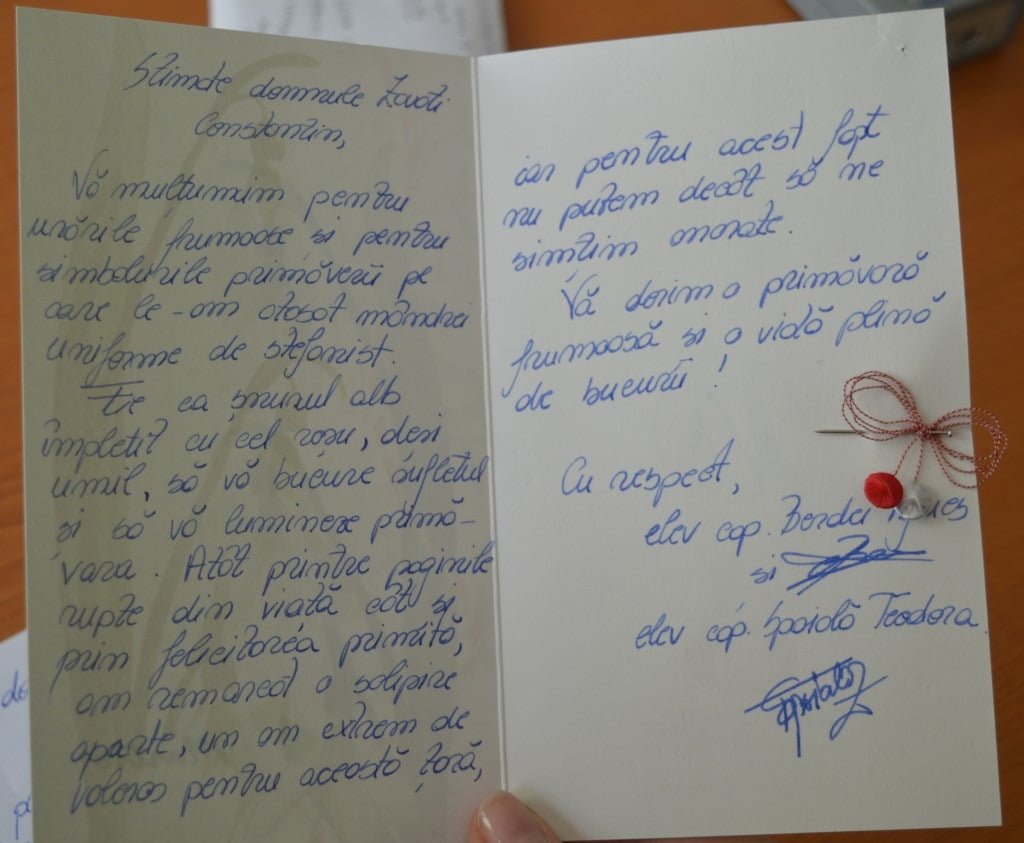 Stimate domnule Zavati
Constantin,
Vă mulțumim pentru
urările frumoase si pentru
simbolurile primăverii pe
care le-am atasat mândrei
uniforme de stefanist.
Fie ca șnurul alb
împletit cu cel roșu, desi
umil, să vă bucure sufletul
si să vă lumineze primă-
vara. Atât printre paginile
rupte din viată cât si
prin felicitarea primită,
am remarcat o sclipire
aparte, un om extrem de
valoros pentru această țară,
iar pentru acest fapt
nu putem decât să ne
simtim onorate.
Vă dorim o primăvară
frumoasă si o viată plină
de bucurii!
Cu respect,
elev cap.
si
elev cap. Spoială Teodora.